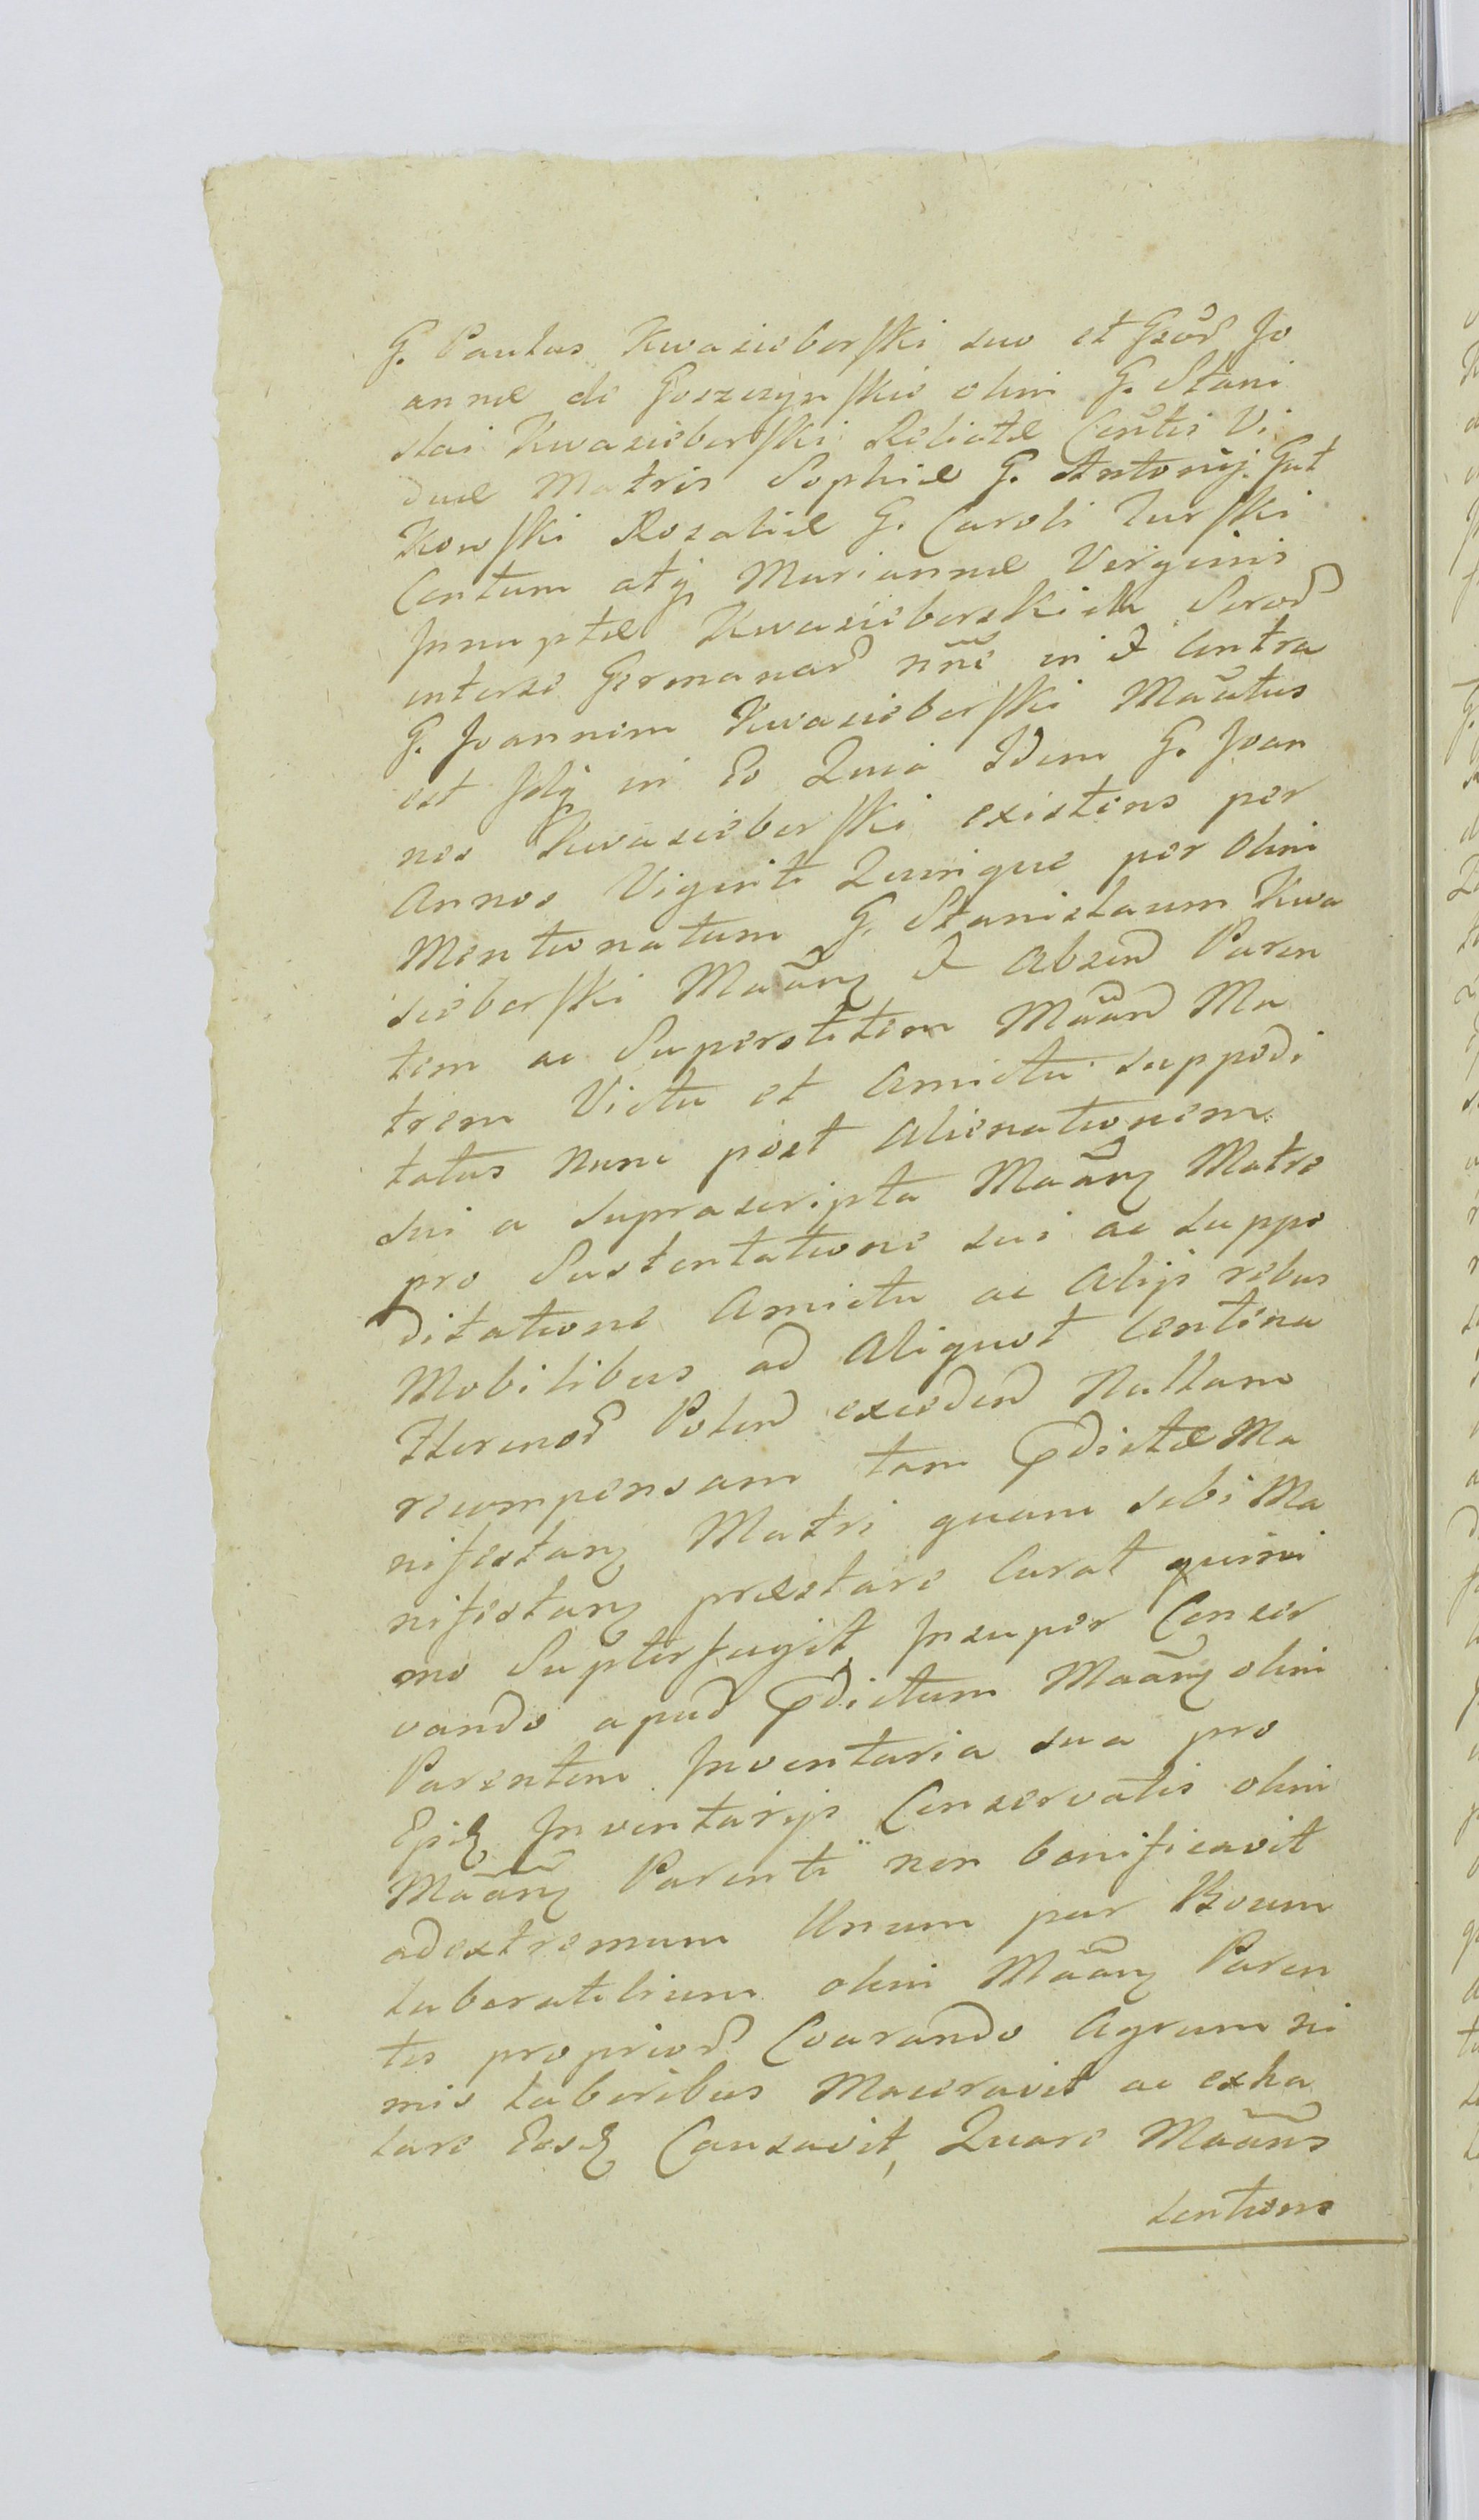 G. Paulus Kwasieborski suo et Gsöd Jo
annæ de Goszczynskie olim G. Stani
slai Kwasieborski Relictæ Conẽtis Vi
duæ Matris Sophiæ G. Antonij Gut
kowski Rosaliæ G. Caroli Turski
Contum atq Mariannæ Virginis
Innuptæ Kwasieborskich Sorod
interse Germanad nñe in & Contra
G. Joannem Kwasieborski Mãtus
est Jdq in Eo Quia Idem G. Joan
nes Kwasieborski existens per
Annos Viginti Quinque per Olim
Mentionatum G. Stanislaum Kwa
sieborski Mãanz & Absend Paren
tem ac Superstitem Mãand Ma
trem Victu et Amictu suppedi
tatus Nunc post Alienationem
sui a suprascripta Mãanz Matre
pro Sustentatione sui ac suppe
ditatione Amictu ac Alijs rebus
Mobilibus ad Aliquot Centena
Florenod Polend excedend Nullam
recompensam tam Pdictæ Ma
nifestanz Matri quam sibi Ma
nifestanz præstare Curat quini
mo Supterfugit, Insuper Conser
vando apud Pdictum Mãanz olim
Parentem Inventaria sua pro
Ejsq Inventarijs Conservatis olim
Mãanz Parenti non bonificavit
adextremum Unum par Boum
laboratilium olim Mãanz Paren
tis propriod Coarando Agrum ni
mis laboribus Maceravit ac exha
lare Eosq Causavit, Quare Mãans
lentions